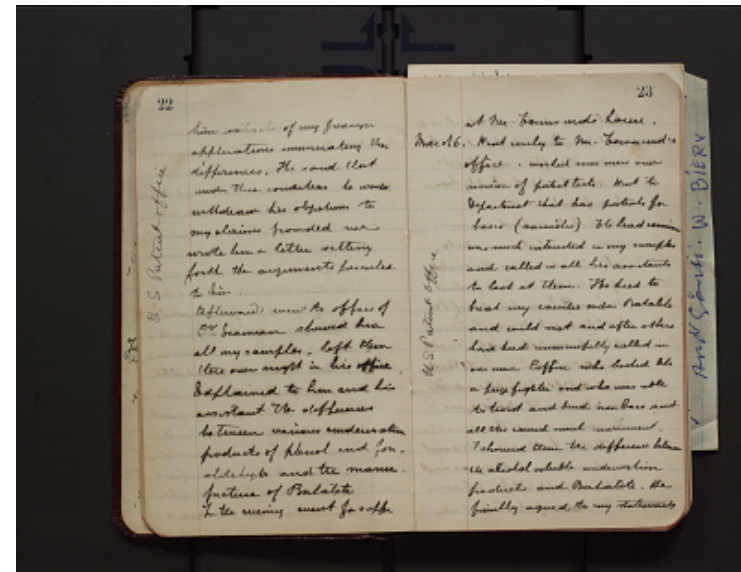 22
U.S Patent office
him extracts of my foreign
applications enumerating the
differences. He said that
under these conditions he would
withdraw his objections to
my claims provided we
wrote him a letter setting
forth the arguments presented
to him.
Afterwards went to office of
Dr Seaman showed him
all my samples, left them
there over night in his office.
Explained to him and his
assistant the differences
between various condensation
products of phenol and for-
maldehyde and the manu-
facture of Bakalite
In the evening went for supper
23
at Mr. Townsend's house.
U.S Patent office
Mar 26. Went early to Mr. Townsend's
office. worked some more over
revision of patent texts. Went to
Department that has patents for
(varnishes) The head examiner
was much interested in my samples
and called in all his assistants
to look at them. He tried to
break my Bakalite
and could not and after others
had tried unsuccessfully called in
one man Coffin who looked like
a prize fighter and who was able
to twist and bend iron bars and
all this caused much merriment.
I showed them the difference between
the alcohol soluble condensation
products and Bakalite. He
finally agreed to my statements
W. BIERY